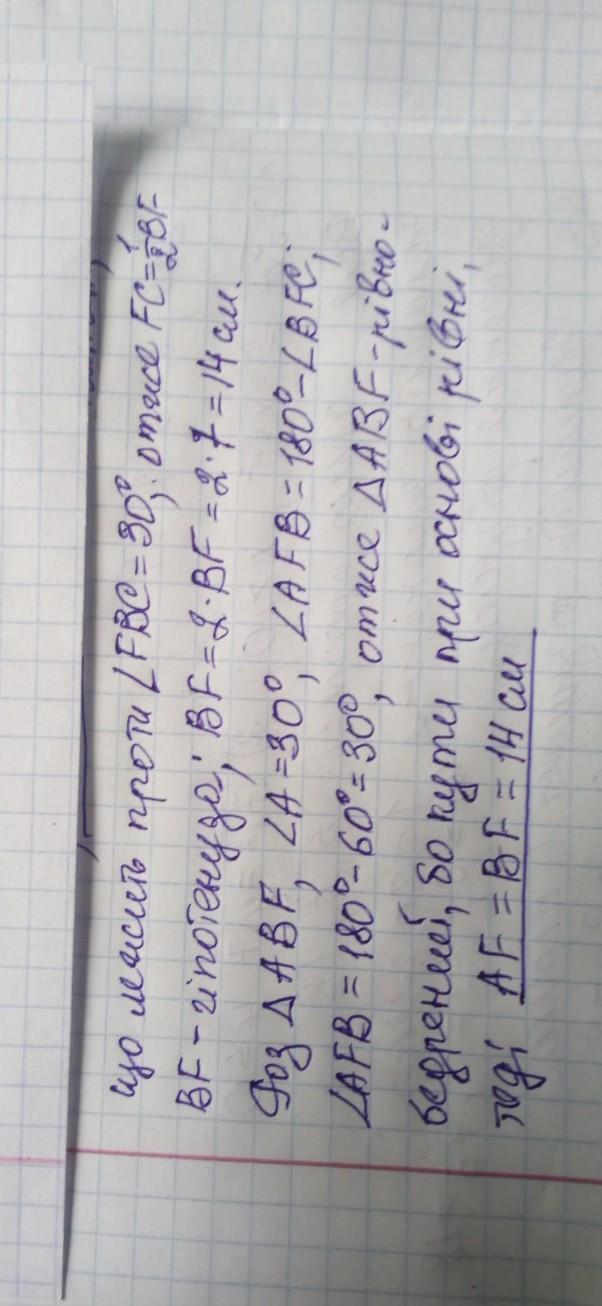 що лежить проти ∠FBC = 30°; отже FC = 1/2 BF
BF - гіпотенуза; BF = 2 · BF = 2 · 7 = 14 см.
Роз ΔABF, ∠A = 30°, ∠AFB = 180° - ∠BFC;
∠AFB = 180° - 60° = 30°, отже ΔABF - рівно-
бедрений, бо кути при основі рівні,
тоді AF = BF = 14 см